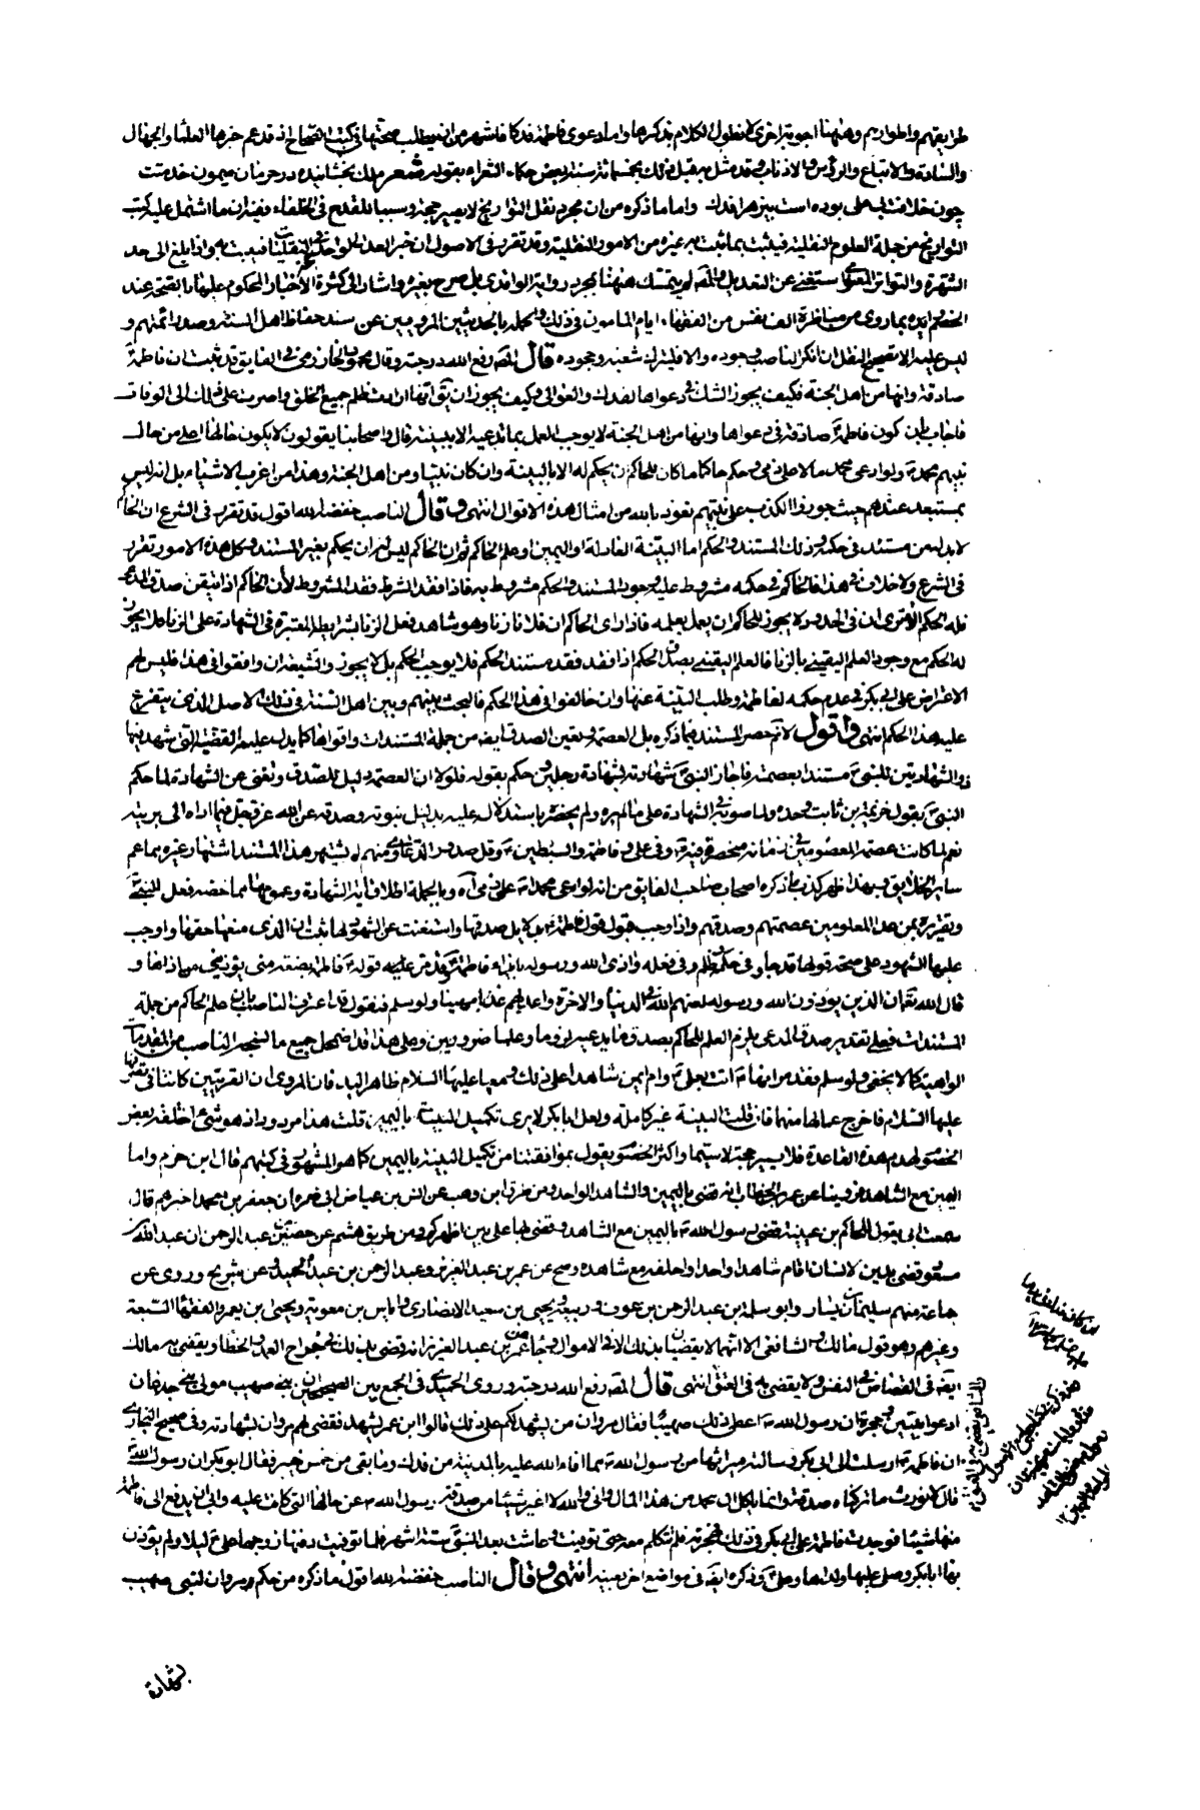 طرايقهم واطوارهم وههنا اجوبة اخرى لا نطول الكلام بذكرها واما دعوى فاطمة فدكا فاشهر من ان يطلب صحتها في كتب الصحاح اذ قد عم خبرها العلماء والجهال
والسادة والاتباع والرؤس والاذناب وقد مثل به قبل ذلك بخمسمائة سنة بعض حكماء الشعراء بقوله شعر ملك بخشانيده در حرمان ميمون خدمتت
چون خلافت بى على بوده است بى زهرا فدك واما ما ذكره من ان مجرد نقل التواريخ لا يصير حجة وسببا للقدح في الخلفاء ففيه ان ما اشتمل عليه كتب
التواريخ من جملة العلوم النقلية فيثبت بما ثبت به غيره من الامور النقلية وقد تقرر في الاصول ان خبر العدل الواحد في النقليات مما يثبت به واذا بلغ الى حد
الشهرة والتواتر المعنوى استغنى عن التعديل والمص لم يتمسك ههنا بمجرد رواية الواقدى بل صرح بغيره واشار الى كثرة الاخبار المحكوم عليها بالصحة عند
الخصم ايده بما روى من مناظرة الف نفس من الفقهاء ايام المامون في ذلك والجملة بالحديثين المرويين عن سند حفاظ اهل السنة وصدر ائمتهم و
ليس عليه الا تصحيح النقل ان انكر الناصب وجوده والا فليترك شغبه وجحوده قال المص رفع الله درجته وقال محمود الخوارزمى في الفايق قد ثبت ان فاطمة ع
صادقة وانها من اهل الجنة فكيف يجوز الشك في دعواها لفدك والعوالى وكيف يجوز ان يق انها ارادت ظلم جميع الخلق واصرت على ذلك الى الوفاة
فاجاب بان كون فاطمة ع صادقة في دعواها وانها من اهل الجنة لا يوجب العمل بما تدعيه الا ببينة قال واصحابنا يقولون لا يكون حالها اعلى من حال
نبيهم محمد ص ولو ادعى محمد مالا على ذمى وحكم حاكما ما كان للحاكم ان يحكم له الا بالبينة وان كان نبيا ومن اهل الجنة وهذا من اغرب الاشياء بل انه ليس
بمستبعد عندهم حيث جوزوا الكذب على نبيهم نعوذ بالله من امثال هذه الاقوال انتهى وقال الناصب خفضه الله اقول قد تقرر في الشرع ان الحاكم
لا بد له من مستند في حكمه وذلك المستند والحكم اما البينة العادلة او اليمين او علم الحاكم ثم ان الحاكم ليس له ان يحكم بغير المستند وكل هذه الامور تقرر
في الشرع ولا خلاف في هذا فالحاكم في حكمه مشروط عليه وجود المستند والحكم مشروط به فاذا فقد الشرط فقد المشروط لأن الحاكم اذا تيقن صدق المدعى
فله الحكم الا ترى ان في الحدود لا يجوز للحاكم ان يعمل بعلمه فاذا راى الحاكم ان فلانا زنا وهو شاهد فعل الزنا بشرايط المعتبرة في الشهادة على الزنا فلا يجوز
له الحكم مع وجود العلم اليقينى بالزنا فالعلم اليقينى بصدق الحكم اذا فقد فقد مستند الحكم فلا يوجب الحكم بل لا يجوز والشيعة ان وافقوا في هذا فليس لهم
الاعتراض على ابى بكر في عدم حكمه لفاطمة وطلب البينة عنها وان خالفوا في هذا الحكم فالبحث بينهم وبين اهل السنة في ذلك الاصل الذى يتفرع
عليه هذا الحكم انتهى واقول لا نم حصر المستند فيما ذكره بل العصمة ويقين الصدق ايضه من جملة المستندات واقواها كما يدل عليه القضية التى شهد فيها
ذو الشهادتين للنبى ص مستندا بعصمته فاجاز النبى ص شهادته بشهادة رجلين وحكم بقوله فلولا ان العصمة دليل للصدق وتغنى عن الشهادة لما حكم
النبى ص بقول خزيمة بن ثابت وحده ولما صوبه في الشهادة على ما لم يره ولم يحضره باستدلال عليه بدليل نبوته وصدقه عن الله عز وجل فيما اداه الى بريته
نعم لما كانت عصمة المعصومين في زمانه منحصرة فيه وفى على وفاطمة والسبطين ع وقل صدور الدعاوى منهم لم يشتهر هذا المستند اشتهار غيره مما عم
ساير الخلايق وبهذا ظهر كذب ما ذكره اصحاب صاحب الفايق من انه لو ادعى محمد ص على ذمى آه وبالجملة اطلاق اية الشهادة وعمومها مما خصه فعل النبى ص
وتقريره بمن عدا المعلومين عصمتهم وصدقهم واذا وجب قبول قول فاطمة ع بدلايل صدقها واستغنت عن الشهود لها ثبت ان الذى منعها حقها واوجب
عليها الشهود على صحة قولها قد جار في حكمه وظلم في فعله واذى الله ورسوله بايذاء فاطمة ع وقد مر عليه قوله ص فاطمة بضعة منى يؤذينى من اذاها و
قال الله تعالى ان الذين يؤذون الله ورسوله لعنهم الله في الدنيا والاخرة واعد لهم عذابا مهينا ولو سلم فنقول قد اعترف الناصب بان علم الحاكم من جملة
المستندات فعلى تقدير صدق المدعى يلزم العلم للحاكم بصدق ما يدعيه لزوما وعلما ضروريين وعلى هذا قد اضمحل جميع ما انتجه الناصب من المقدمات
الواهية كما لا يخفى ولو سلم فقد مر انها ع اتت بعلى ع وام ايمن شاهدا على ذلك ومع ما عليها السلام ظاهر اليد فان المروى ان القريتين كانتا في تصرفها
عليها السلام فاخرج عمالها منهما فان قلت البينة غير كاملة ولعل ابا بكر لا يرى تكميل البينة باليمين قلت هذا مردود اذ هو شئ اختلقه بعض
الخصوم لهدم هذه القاعدة فلا يصير حجة لا سيما واكثر الخصوم يقول بموافقتنا من تكميل البينة باليمين كما هو المشهور في كتبهم قال ابن حزم واما
اليمين مع الشاهد فروينا عن عمر بن الخطاب انه قضى باليمين والشاهد الواحد ومن طريق ابن وهب عن انس بن عياض ابى ضمرة ان جعفر بن محمد اخبرهم قال
سمعت ابى يقول للحاكم بن عيينة قضى رسول الله ص باليمين مع الشاهد وقضى بها على بين اظهركم ومن طريق هشيم عن حصين بن عبد الرحمن ان عبد الله بن
مسعود قضى بدين لانسان اقام شاهدا واحدا واحلفه مع شاهده وصح عن عمر بن عبد العزيز وعبد الرحمن بن عبد الحميد وعن شريح وروى عن
جماعة منهم سليمان بن يسار وابو سلمة بن عبد الرحمن بن عوف وربيعة ويحيى بن سعيد الانصارى واياس بن معوية ويحيى بن يعمر والفقهاء السبعة
وغيرهم وهو قول مالك والشافعى الا انهما لا يقضيان بذلك الا في الاموال وجاء عن عمر بن عبد العزيز انه قضى بذلك في جراح العمد والخطا ويقضى به مالك
ايضه في القصاص في النفس ولا يقضى به في العتق انتهى قال المص رفع الله درجته وروى الحميدى في الجمع بين الصحيحين ان بنى صهيب مولى بنى جدعان
ادعوا بيتين وحجرة ان رسول الله ص اعطى ذلك صهيبا فقال مروان من يشهد لكم على ذلك قالوا ابن عمر يشهد فقضى لهم مروان بشهادته وفى صحيح البخارى
ان فاطمة ع ارسلت الى ابى بكر وسالته ميراثها من رسول الله ص مما افاء الله عليه بالمدينة من فدك وما بقى من خمس خيبر فقال ابو بكر ان رسول الله ص
قال لا نورث ما تركناه صدقة وانما ياكل ال محمد من هذا المال وانى والله لا اغير شيئا من صدقة رسول الله ص عن حالها التى كانت عليه وابى ان يدفع الى فاطمة
منها شيئا فوجدت فاطمة على ابى بكر في ذلك فهجرته فلم تتكلم معه حتى توفيت وعاشت بعد النبى ص ستة اشهر فلما توفيت دفنها زوجها على ع ليلا ولم يؤذن
بها ابا بكر وصلى عليها ولدها وعلى ع وذكره ايضه في مواضع اخر بعينه انتهى وقال الناصب خفضه الله اقول ما ذكره من حكم مروان لبنى صهيب
بشهادة